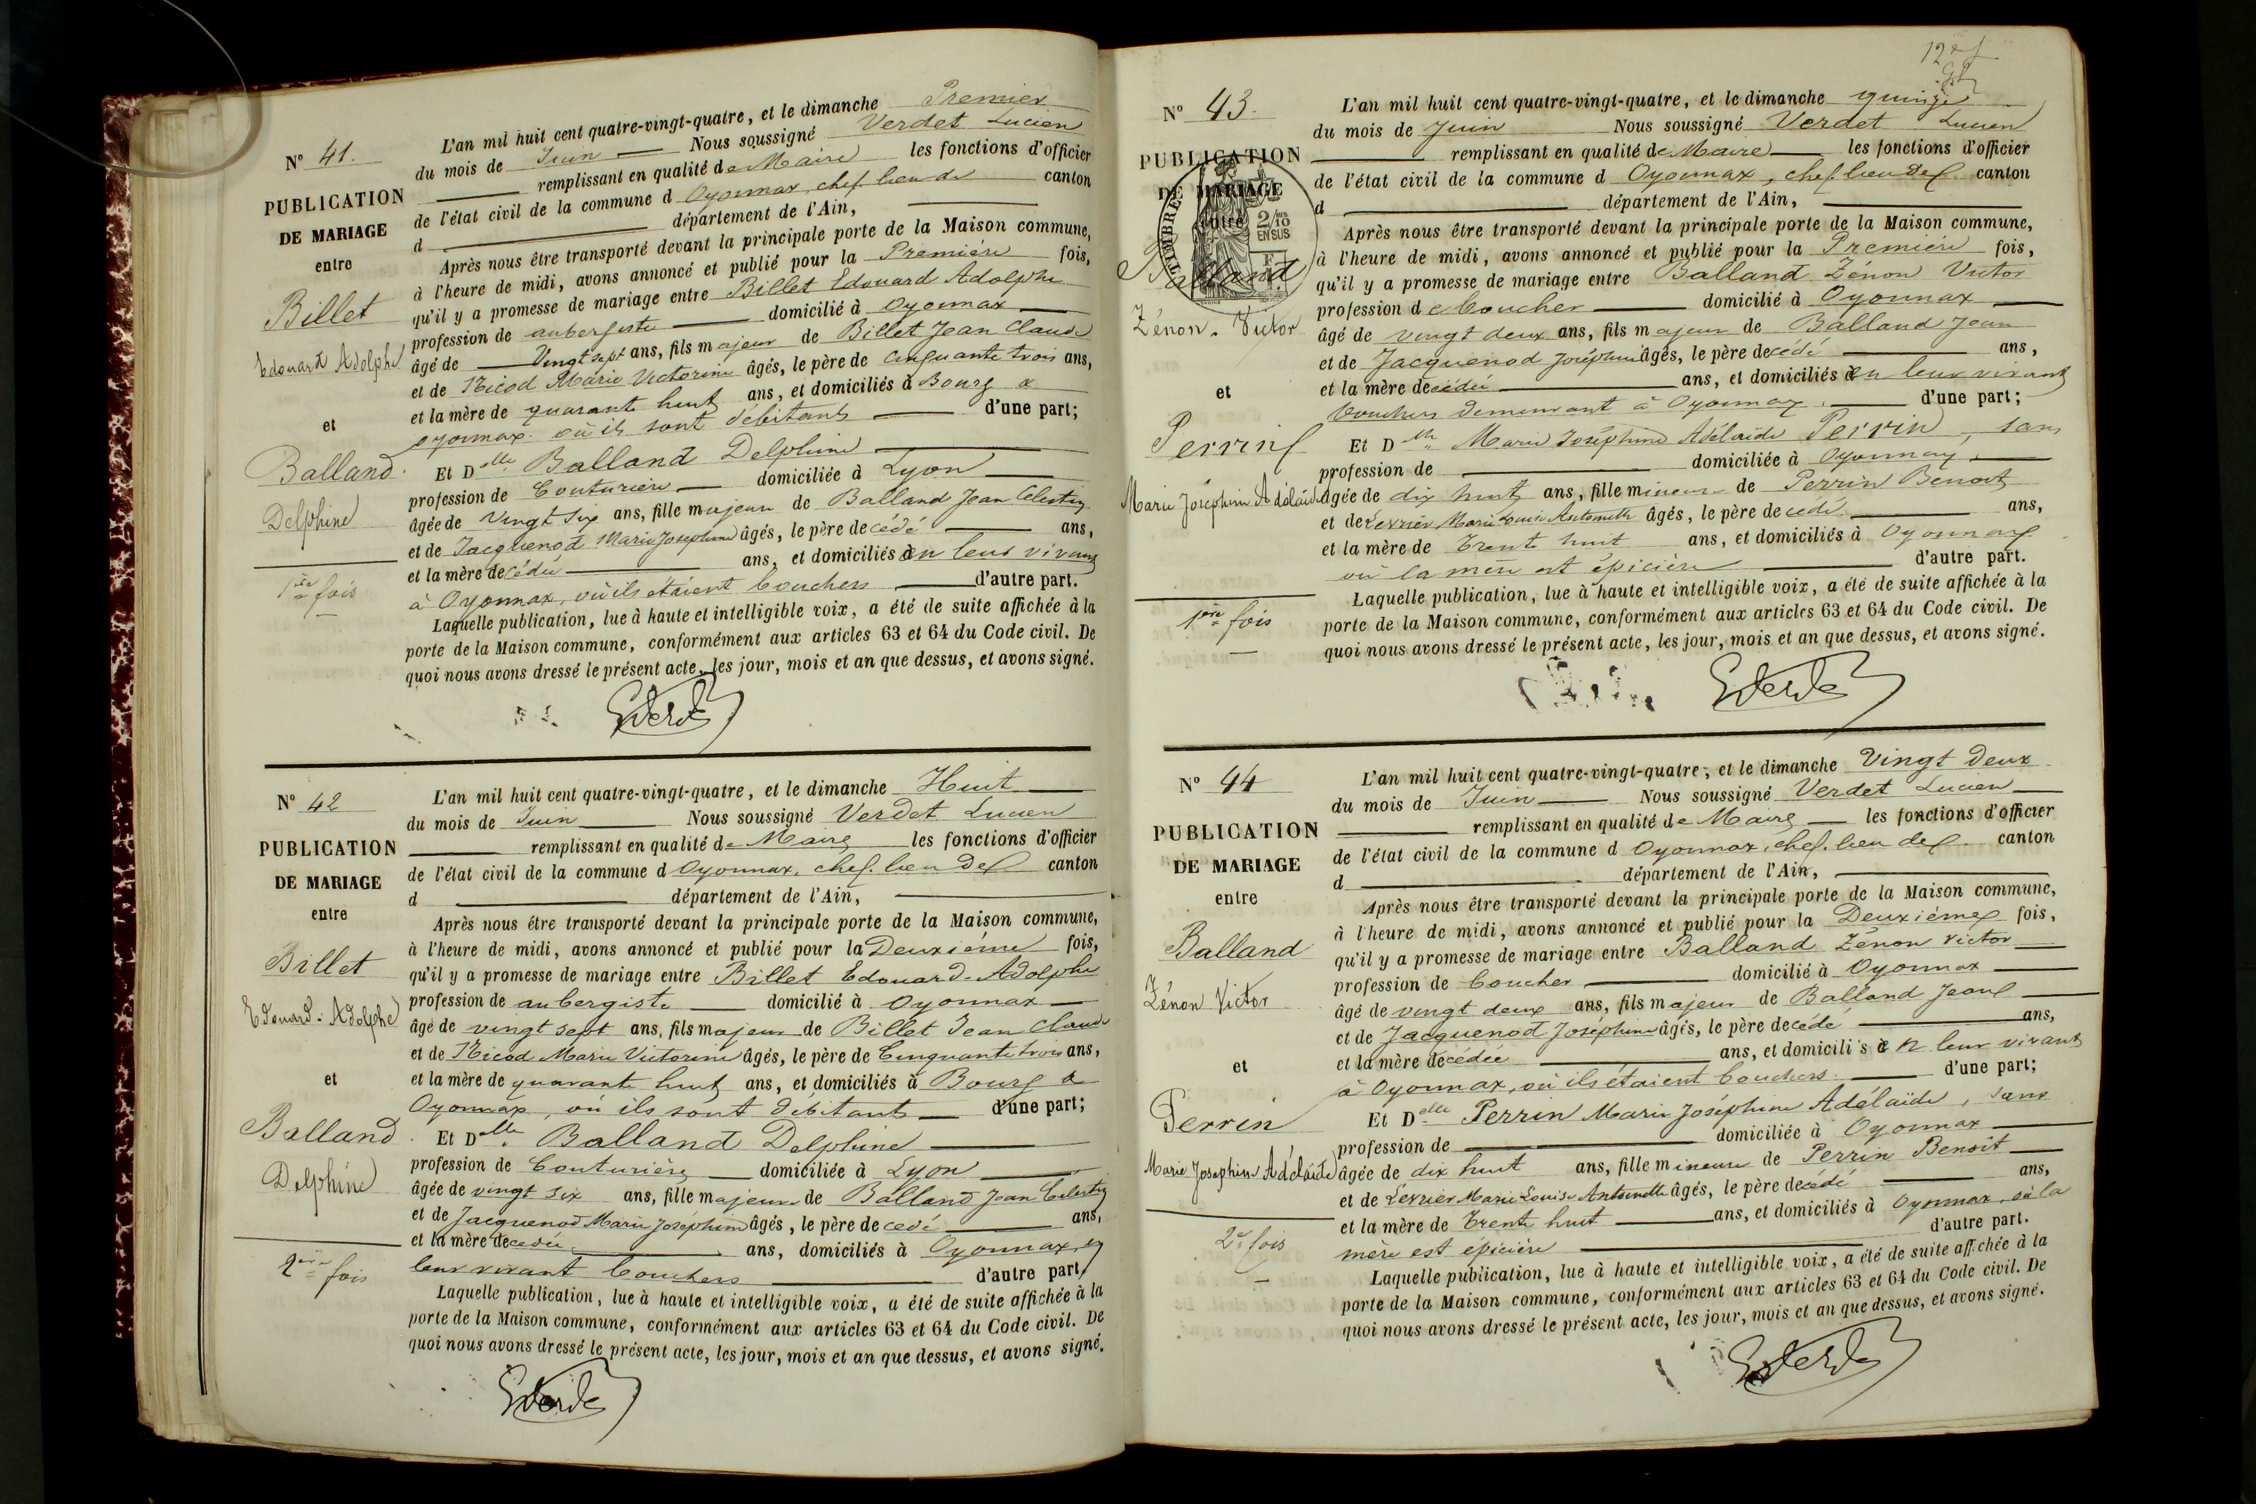 N° 41.
PUBLICATION
DE MARIAGE
entre
Billet
Edouard Adolphe
et
Balland.
Delphine
1ère fois
L'an mil huit cent quatre-vingt-quatre, et le dimanche Premier
du mois de Juin Nous soussigné Verdet Lucien
remplissant en qualité de Maire les fonctions d'officier
de l'état civil de la commune d Oyonnax, chef lieu de canton
d département de l'Ain,
Après nous être transporté devant la principale porte de la Maison commune,
à l'heure de midi, avons annoncé et publié pour la Première fois,
qu'il y a promesse de mariage entre Billet Edouard Adolphe
profession de aubergiste domicilié à Oyonnax
âgé de Vingt sept ans, fils majeur de Billet Jean Claude
et de Nicod Marie Victorine âgés, le père de cinquante trois ans,
et la mère de quarante huit ans, et domiciliés à Bourg a
oyonnax. où ils sont débitants d'une part;
Et Delle Balland Delphine
profession de Couturière domiciliée à Lyon
âgée de Vingt six ans, fille majeure de Balland Jean Célestin
et de Jacquenod Marie Joséphine âgés, le père decédé ans,
et la mère decédée ans, et domiciliés à en leur vivant
à Oyonnax, où ils étaient bouchers d'autre part.
Laquelle publication, lue à haute et intelligible voix, a été de suite affichée à la
porte de la Maison commune, conformément aux articles 63 et 64 du Code civil. De
quoi nous avons dressé le présent acte, les jour, mois et an que dessus, et avons signé.
N° 42
PUBLICATION
DE MARIAGE
entre
Billet
Edouard. Adolphe
et
Balland.
Delphine
2ème fois
L'an mil huit cent quatre-vingt-quatre, et le dimanche Huit
du mois de Juin Nous soussigné Verdet Lucien
remplissant en qualité de Maire les fonctions d'officier
de l'état civil de la commune d Oyonnax, chef. lieu de canton
d département de l'Ain,
Après nous être transporté devant la principale porte de la Maison commune,
à l'heure de midi, avons annoncé et publié pour la Deuxième fois,
qu'il y a promesse de mariage entre Billet Edouard. Adolphe
profession de aubergiste domicilié à Oyonnax
âgé de vingt sept ans, fils majeur de Billet Jean Claude
et de Nicod Marie Victorine âgés, le père de Cinquante trois ans,
et la mère de quarante huit ans, et domiciliés à Bourg a
Oyonnax, où ils sont débitants d'une part;
Et Delle Balland Delphine
profession de Couturière domiciliée à Lyon
âgée de vingt six ans, fille majeure de Balland Jean Celestin
et de Jacquenod Marie Joséphine âgés, le père decedé ans,
et la mère decedée ans, domiciliés à Oyonnax, en
leur vivant bouchers d'autre part
Laquelle publication, lue à haute et intelligible voix, a été de suite affichée à la
porte de la Maison commune, conformément aux articles 63 et 64 du Code civil. De
quoi nous avons dressé le présent acte, les jour, mois et an que dessus, et avons signé.
N° 43.
PUBLICATION
DE MARIAGE
entre
TIMBRES
2/10
EN SUS
Balland
Zénon. Victor
et
Perrin
Marie Joséphine Adélaïde
1ère fois
L'an mil huit cent quatre-vingt-quatre, et le dimanche quinze
du mois de Juin Nous soussigné Verdet Lucien
remplissant en qualité de Maire les fonctions d'officier
de l'état civil de la commune d Oyonnax, chef lieu de canton
d département de l'Ain,
Après nous être transporté devant la principale porte de la Maison commune,
à l'heure de midi, avons annoncé et publié pour la Première fois,
qu'il y a promesse de mariage entre Balland Zénon Victor
profession de boucher domicilié à Oyonnax
âgé de vingt deux ans, fils majeur de Balland Jean
et de Jacquenod Joséphine âgés, le père decédé ans,
et la mère decédée ans, et domiciliés à en leur vivant
bouchers demeurant à Oyonnax. d'une part;
Et Dlle Marie Joséphine Adélaïde Perrin, sans
profession de domiciliée à Oyonnax
âgée de dix huit ans, fille mineure de Perrin Benoit
et de Levrier Marie Louise Antoinette âgés, le père decédé ans,
et la mère de Trente huit ans, et domiciliés à Oyonnax
où la mère est épicière d'autre part.
Laquelle publication, lue à haute et intelligible voix, a été de suite affichée à la
porte de la Maison commune, conformément aux articles 63 et 64 du Code civil. De
quoi nous avons dressé le présent acte, les jour, mois et an que dessus, et avons signé.
N° 44
PUBLICATION
DE MARIAGE
entre
Balland
Zénon Victor
et
Perrin
Marie Josephine Adélaïde
2e fois
L'an mil huit cent quatre-vingt-quatre, et le dimanche Vingt Deux
du mois de Juin Nous soussigné Verdet Lucien
remplissant en qualité de Maire les fonctions d'officier
de l'état civil de la commune d Oyonnax, chef. lieu de canton
d département de l'Ain,
Après nous être transporté devant la principale porte de la Maison commune,
à l'heure de midi, avons annoncé et publié pour la Deuxième fois,
qu'il y a promesse de mariage entre Balland Zénon Victor
profession de boucher domicilié à Oyonnax
âgé de vingt deux ans, fils majeur de Balland Jean
et de Jacquenod Joséphine âgés, le père decédé ans,
et la mère décédée ans, et domicili s à en leur vivant
à Oyonnax, où ils étaient bouchers. d'une part;
Et Delle Perrin Marie Joséphine Adélaïde, sans
profession de domiciliée à Oyonnax
âgée de dix huit ans, fille mineure de Perrin Benoit
et de Levrier Marie Louise Antoinette âgés, le père decédé ans,
et la mère de Trente huit ans, et domiciliés à Oyonnax, où la
mère est épicière d'autre part.
Laquelle publication, lue à haute et intelligible voix, a été de suite affichée à la
porte de la Maison commune, conformément aux articles 63 et 64 du Code civil. De
quoi nous avons dressé le présent acte, les jour, mois et an que dessus, et avons signé.